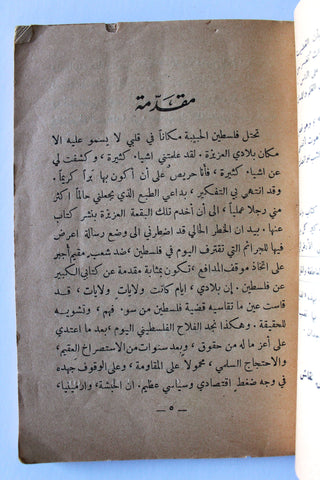 مقدّمة
تحتل فلسطين الحبيبة مكاناً في قلبي لا يسمو عليه الا
مكان بلادي العزيزة . لقد علمتني اشياء كثيرة ، وكشفت لي
عن اشياء كثيرة ، فأنا حريص على أن أكون بها برآ كريماً .
وقد انتهر بي التفكير ، بداعي الطبع الذي يجعلني حالماً اكثر
مني رجلا عملياً ، الى أن أخدم تلك البقعة العزيزة بنشر كتاب
عنها . بيد ان الخطر الحالي قد اضطرني الى وضع رسالة اعرض
فيها للجرائم التي تقترف اليوم في فلسطين ، ضد شعب مقيم أجبر
على اتخاذ موقف المدافع ، تكون بمثابة مقدمة عن كتابي الكبير
عن فلسطين . إن بلادي ، ايام كانت ولايات ، ولايات ، قد
قاست عين ما تقاسيه قضية فلسطين من سوء فهم ، وتشويه
للحقيقة . وهكذا نجد الفلاح الفلسطيني اليوم ، بعد ما اعتدي
على أعز ما له من حقوق ، وبعد سنوات من الاستصراخ العقيم ،
والاحتجاج السلمي ، محمولاً على المقاومة ، وعلى الوقوف جهده
في وجه ضغط اقتصادي وسياسي عظيم . ان الحبشة ، وارمينيا ،
— ٥ —